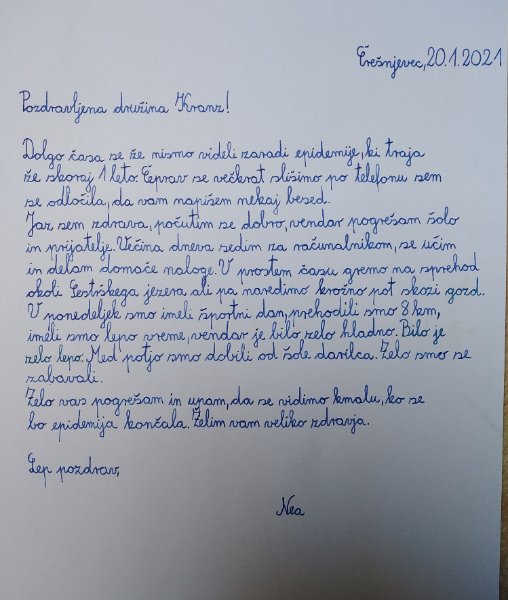 Črešnjevec, 20.1.2021
Pozdravljena družina Kranz!
Dolgo časa se že nismo videli zaradi epidemije, ki traja
že skoraj 1 leto. Čeprav se večkrat slišimo po telefonu sem
se odločila, da vam napišem nekaj besed.
Jaz sem zdrava, počutim se dobro, vendar pogrešam šolo
in prijatelje. Večina dneva sedim za računalnikom, se učim
in delam domače naloge. V prostem času gremo na sprehod
okoli Čestrškega jezera ali pa naredimo krožno pot skozi gozd.
V ponedeljek smo imeli športni dan, prehodili smo 8 km,
imeli smo lepo vreme, vendar je bilo zelo hladno. Bilo je
zelo lepo. Med potjo smo dobili od šole darilca. Zelo smo se
zabavali.
Zelo vas pogrešam in upam, da se vidimo kmalu, ko se
bo epidemija končala. Želim vam veliko zdravja.
Lep pozdrav,
Nea